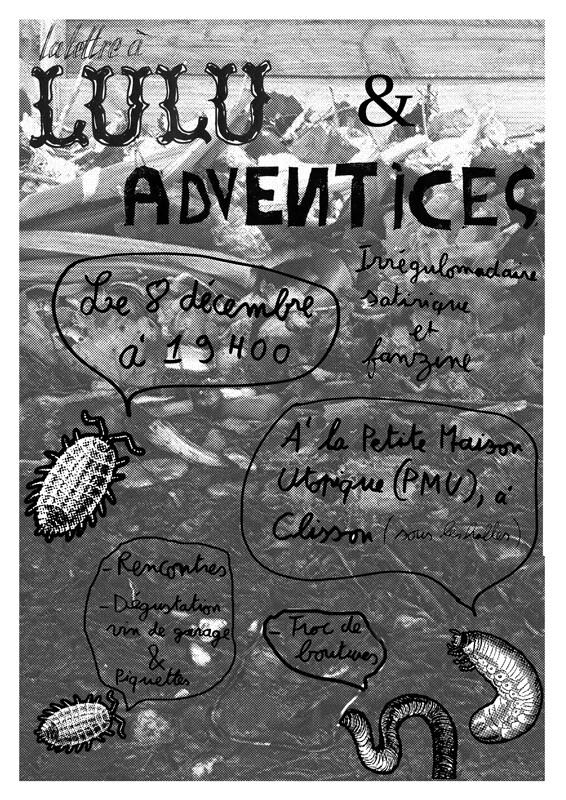 la lettre à
LULU &
ADVENTICES
Irrégulomadaire
satirique
et
fanzine
Le 8 décembre
à 19H00
A' la Petite Maison
Utopique (PMU), à
Clisson (sous les halles)
- Rencontres
- Dégustation
vin de garage
&
Piquettes
- Troc de
boutures